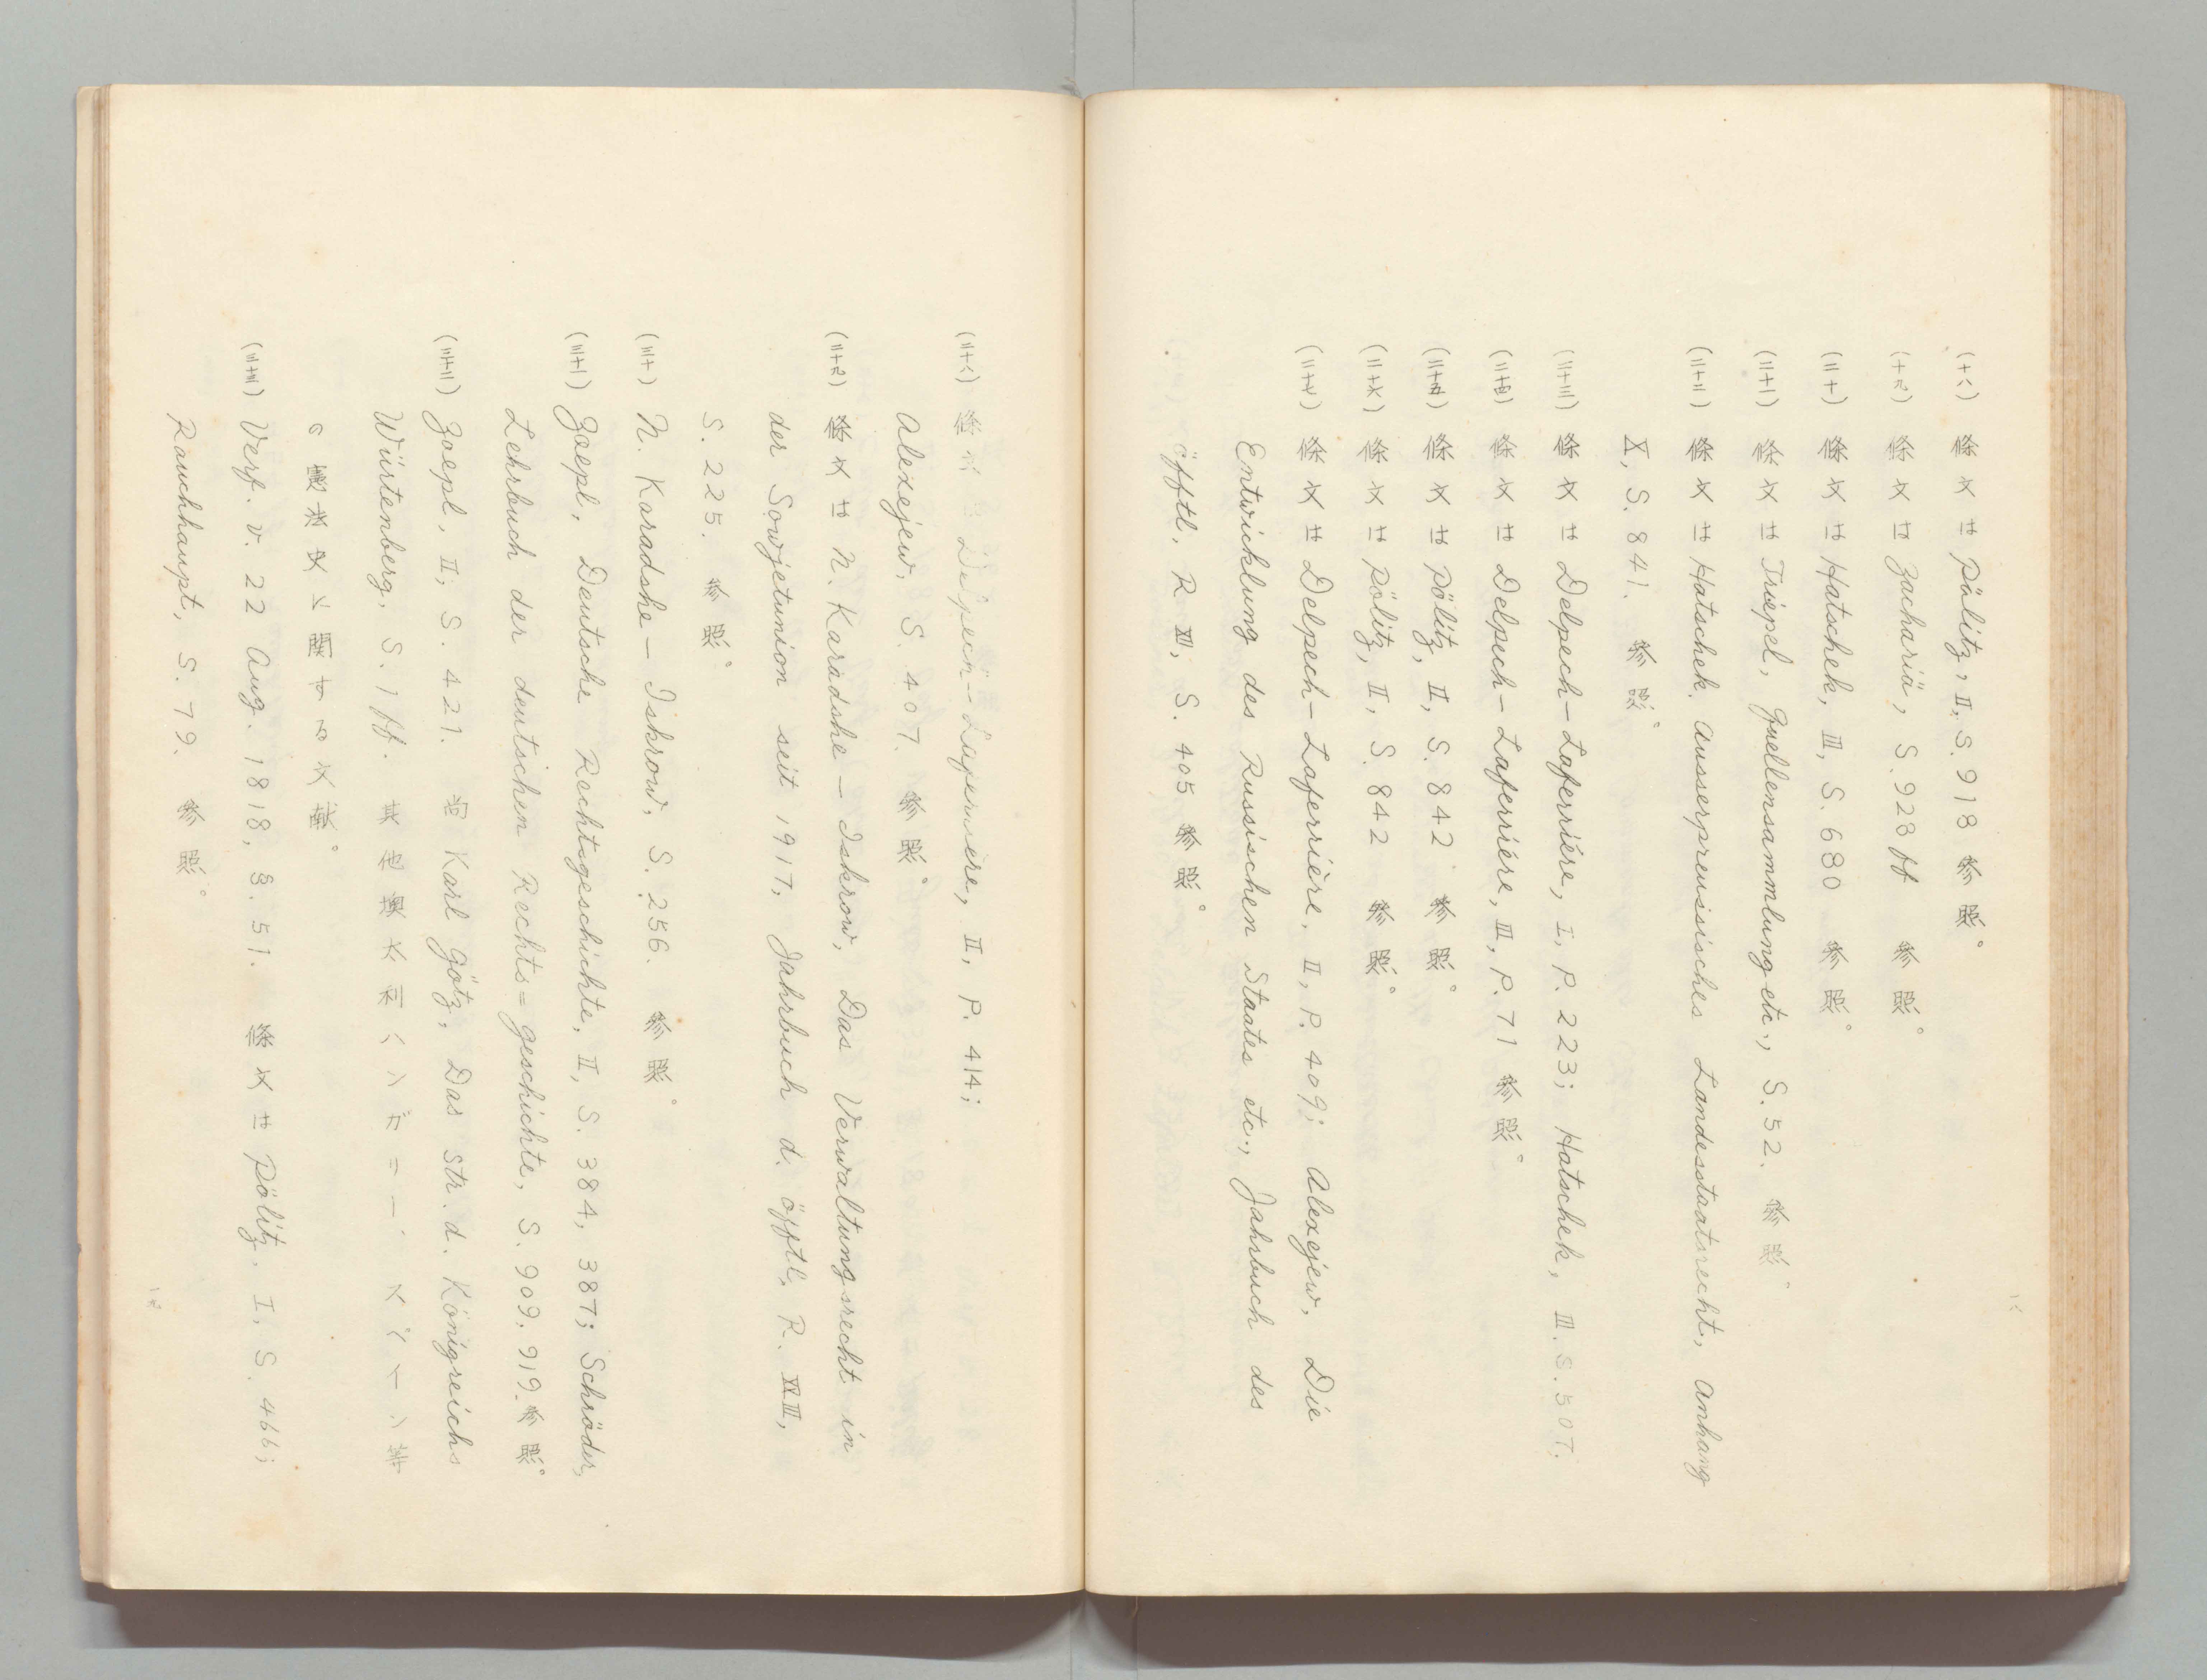 (十八) 條文は Pölitz, II, S. 918 参照。
(十九) 條文は Zachariä, S. 923 ff 参照。
(二十) 條文は Hatschek, III, S. 680 参照。
(二十一) 條文は Triepel, Quellensammlung etc., S. 52. 参照
(二十二) 條文は Hatschek. Ausserpreussisches Landesstaatsrecht, Anhang
X, S. 841. 参照。
(二十三) 條文は Delpech–Laferrière, I, P. 223; Hatschek, III. S. 507.
(二十四) 條文は Delpech–Laferriére, III, P. 71 参照。
(二十五) 條文は Pölitz, II, S. 842 参照。
(二十六) 條文は Pölitz, II, S. 842 参照。
(二十七) 條文は Delpech–Laferrière, II, P. 409; Alexejew. Die
Entwicklung des Russischen Staates etc., Jahrbuch des
öfftl. R S. 405 参照。
(二十八) 條 II, P. 414;
Alexejew. S. 407. 参照。
(二十九) 條文は N. Karadshe–Iskrow, Das Verwaltungsrecht in
der Sowjetunion seit 1917, Jahrbuch d. öfftl. R.
S. 225. 参照。
(三十) N. Karadshe–Iskrow, S. 256. 参照。
(三十一) Zoepl, Deutsche Rechtsgeschichte, II, S. 384, 387; Schröder,
Lehrbuch der deutschen Rechts=geschichte, S. 909, 919. 参照。
(三十二) Zoepl, II, S. 421. 尚 Karl Götz, Das Str. d. Königreichs
Würtenberg, S. 1 ff. 其他墺太利ハンガリー、バイヤーン等
の憲法史に関する文献。
(三十三) Verf. v. 22 Aug. 1818, §. 51. 條文は Pölitz, I, S. 466;
Rauchhaupt, S. 79. 参照。
十九